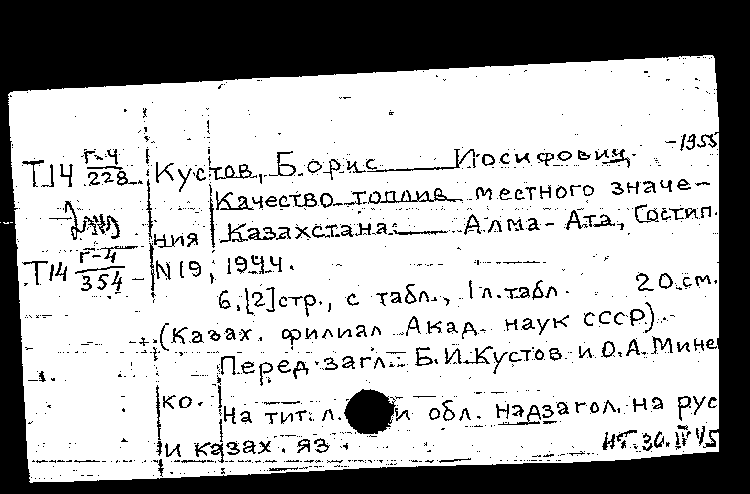 Т14 Г-4/228 Кустов, Борис Иосифович -1955
Качество топлив местного значе-
ния Казахстана. Алма-Ата, Гостип.
Т14 Г-4/354 N19, 1944.
6,[2]стр., с табл., 1л.табл. 20.см.
(Казах. филиал Акад. наук СССР).
Перед загл.: Б.И.Кустов и О.А.Мине
ко.
На тит. л. и обл. надзагол. на рус
и казах. яз.
НТ.30.IV 45